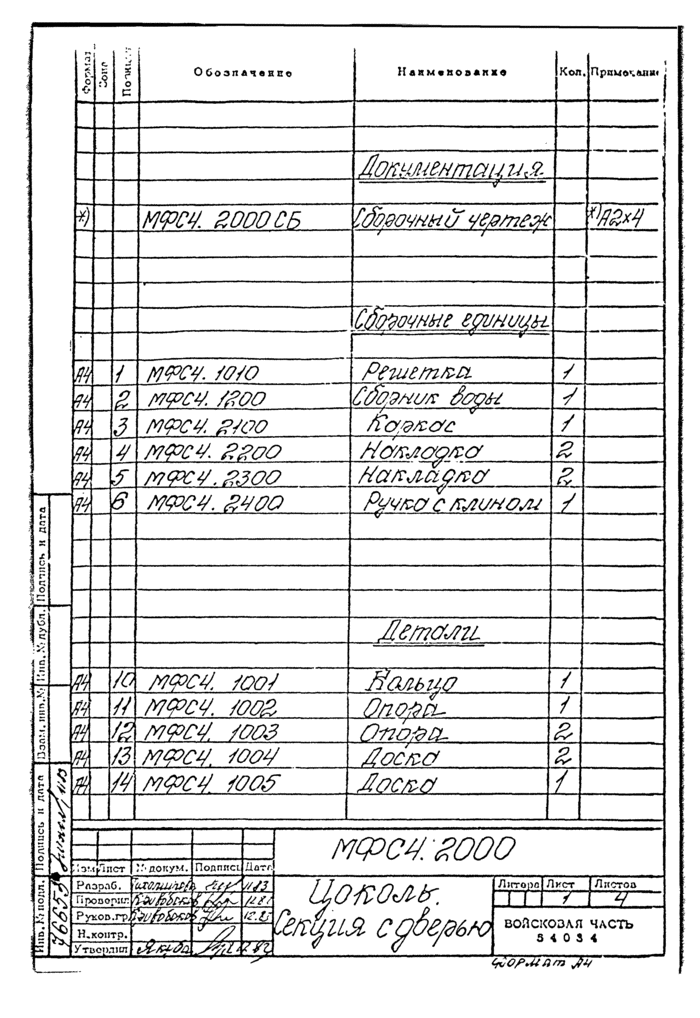 Формат Зона Позиция Обозначение Наименование Кол. Примечание
Документация
*) МФС4. 2000 СБ Сборочный чертеж *)А2х4
Сборочные единицы
А4 1 МФС4. 1010 Решетка 1
А4 2 МФС4. 1200 Сборник воды 1
А4 3 МФС4. 2100 Каркас 1
А4 4 МФС4. 2200 Накладка 2
А4 5 МФС4. 2300 Накладка 2
А4 6 МФС4. 2400 Ручка с клином 1
Детали
А4 10 МФС4. 1001 Кольцо 1
А4 11 МФС4. 1002 Опора 1
А4 12 МФС4. 1003 Опора 2
А4 13 МФС4. 1004 Доска 2
А4 14 МФС4. 1005 Доска 1
Инв. № подл. Подпись и дата Взам. инв. № Инв. № дубл. Подпись и дата
МФС4. 2000
Изм Лист № докум. Подпись Дата
Разраб.
Проверил
Руков.гр.
Н.контр.
Утвердил
Цоколь.
Секция с дверью
Литера Лист Листов
1 4
ВОЙСКОВАЯ ЧАСТЬ
54034
ФОРМАТ А4